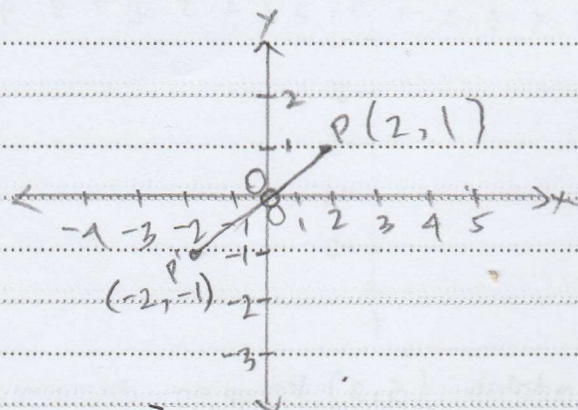 Y
2
P(2,1)
1
O
X
-4 -3 -2 -1 0 1 2 3 4 5
P'
-1
(-2,-1)
-2
-3